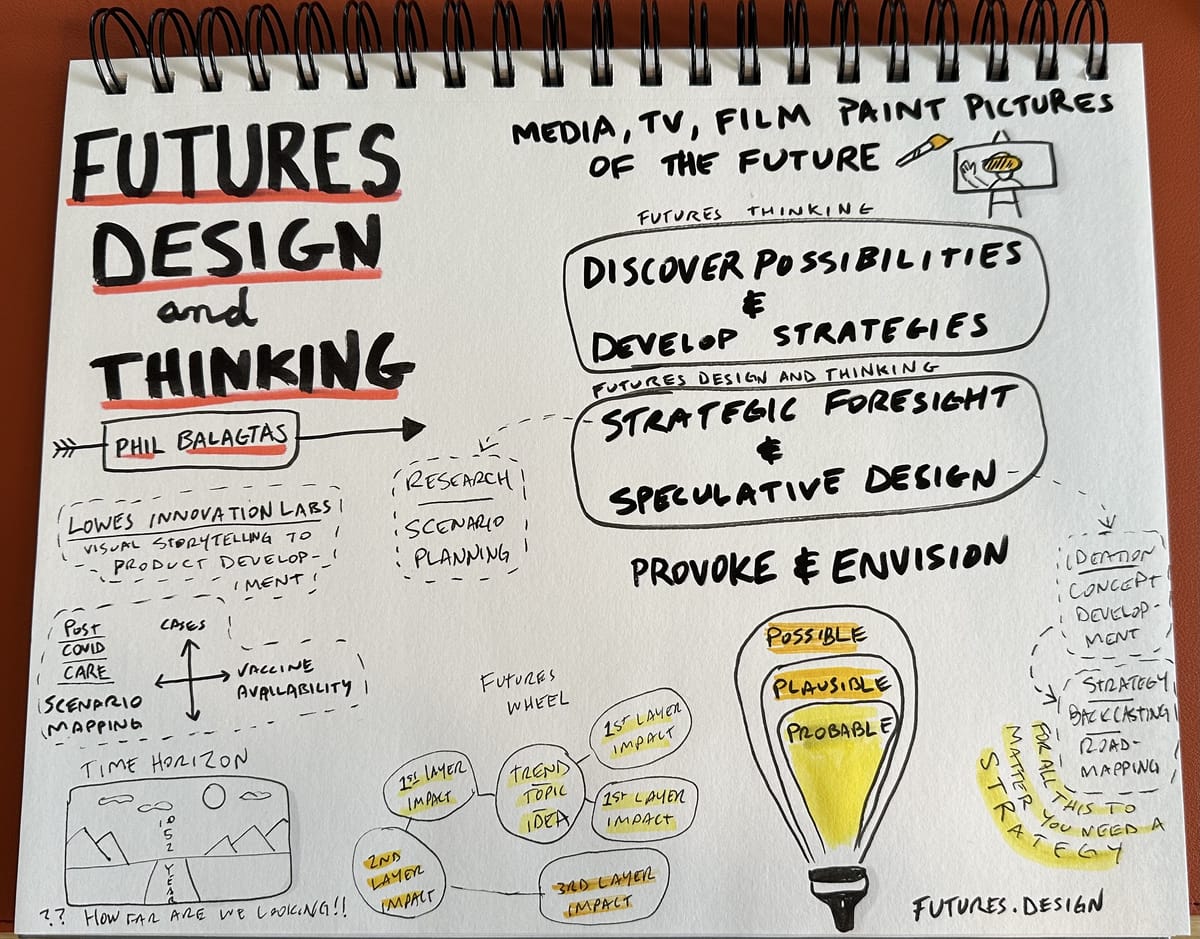 FUTURES
DESIGN
and
THINKING
PHIL BALAGTAS
LOWES INNOVATION LABS
VISUAL STORYTELLING TO
PRODUCT DEVELOP-
MENT
POST
COVID
CARE
SCENARIO
MAPPING
CASES
VACCINE
AVAILABILITY
TIME HORIZON
10
5
2
YEAR
?? HOW FAR ARE WE LOOKING!!
MEDIA, TV, FILM PAINT PICTURES
OF THE FUTURE
FUTURES THINKING
DISCOVER POSSIBILITIES
&
DEVELOP STRATEGIES
FUTURES DESIGN AND THINKING
STRATEGIC FORESIGHT
&
SPECULATIVE DESIGN
RESEARCH
SCENARIO
PLANNING
PROVOKE & ENVISION
IDEATION
CONCEPT
DEVELOP-
MENT
STRATEGY
BACKCASTING
ROAD-
MAPPING
FUTURES
WHEEL
TREND
TOPIC
IDEA
1ST LAYER
IMPACT
1ST LAYER
IMPACT
1ST LAYER
IMPACT
2ND
LAYER
IMPACT
3RD LAYER
IMPACT
POSSIBLE
PLAUSIBLE
PROBABLE
FOR ALL THIS TO
MATTER YOU NEED A
STRATEGY
FUTURES.DESIGN